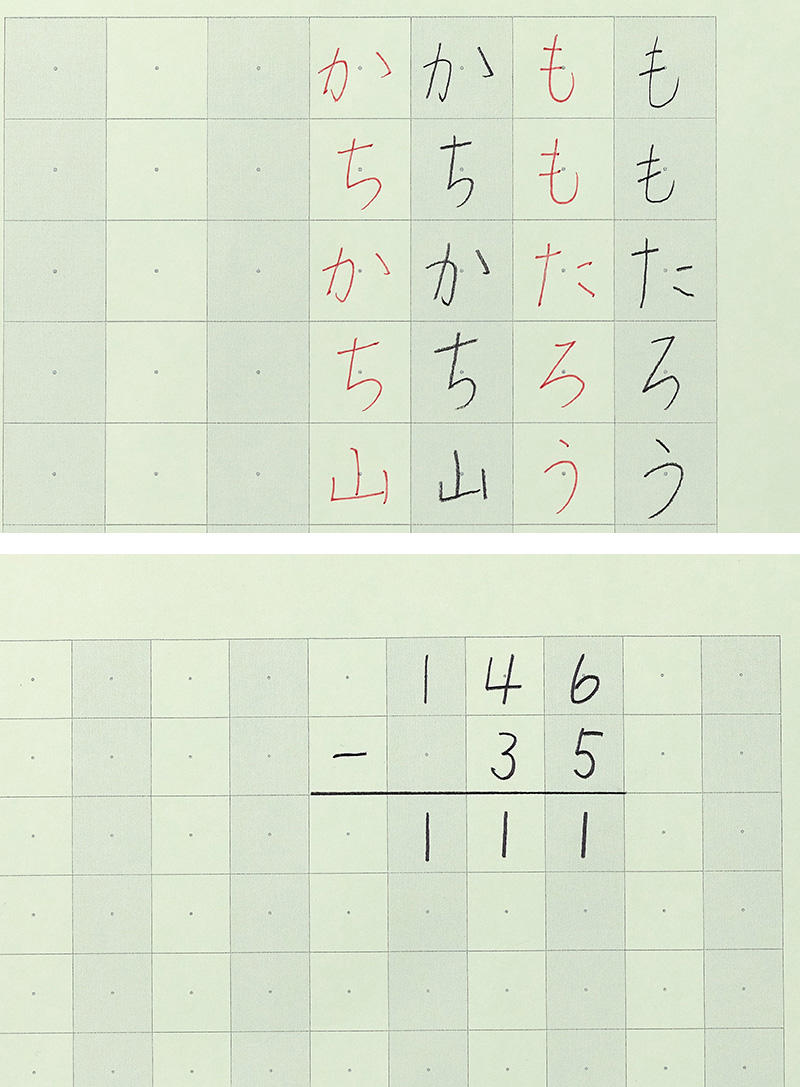 ももたろう
ももたろう
かちかち山
かちかち山
146
－ 35
111